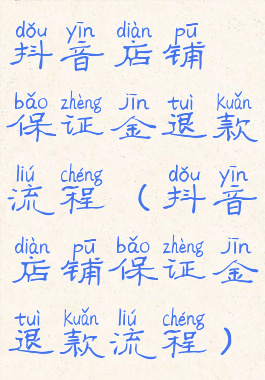 dǒu yīn diàn pū
抖音店铺
bǎo zhèng jīn tuì kuǎn
保证金退款
liú chéng dǒu yīn
流程（抖音
diàn pū bǎo zhèng jīn
店铺保证金
tuì kuǎn liú chéng
退款流程）